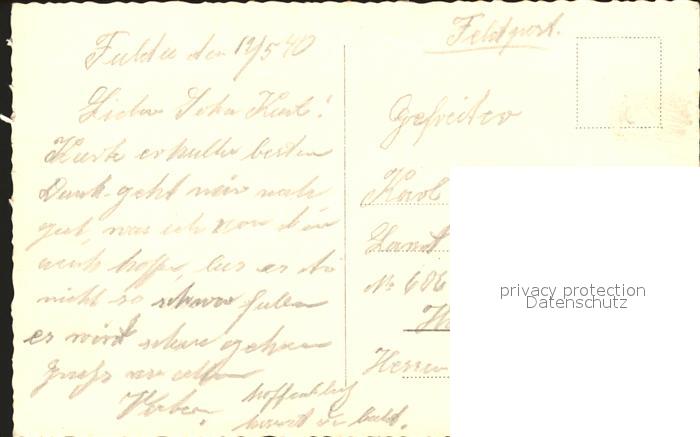 Fulda den 12/5 40
Feldpost.
Lieber Sohn Karl!
Karte erhalten besten
Dank geht mir noch
gut, was ich von dir
auch hoffe, las es dir
nicht so schwer fallen
es wird schon gehen
Gruß von allen
hoffentlich
kommst du bald.
Gefreiter
Karl
Landt
No 606
Hessen
privacy protection
Datenschutz